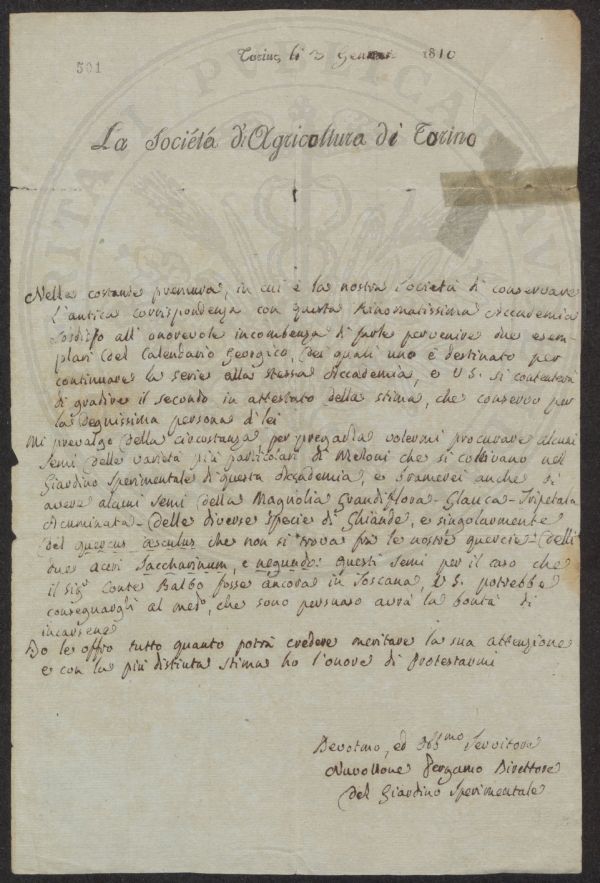 501
Torino li 3 Gennaio 1810
La Società d'Agricoltura di Torino
Nella costante premura, in cui è la nostra Società di conservare
l'antica corrispondenza con questa Rinomatissima Accademia
sodisfo all'onorevole incombenza di farle pervenire due esem-
plari del Calendario Georgico, dei quali uno è destinato per
continuare la serie alla stessa Accademia, e V.S. si contenterà
di gradire il secondo in attestato della stima, che conservo per
la degnissima persona di lei
Mi prevalgo della circostanza per pregarla volermi procurare alcuni
semi delle varietà più particolari di Meloni che si coltivano nel
Giardino Sperimentale di questa Accademia, e bramerei anche di
avere alcuni semi della Magnolia Grandiflora - Glauca - Tripetala
Acuminata - delle diverse specie di Ghiande, e singolarmente
del quercus æsculus che non si trova fra le nostre quercie - delli
due aceri Saccharinum, e negundo: questi semi per il caso che
il Sigr Conte Balbo fosse ancora in Toscana, V.S. potrebbe
conseguargli al medo, che sono persuaso avrà la bontà di
incarsene
Io le offro tutto quanto potrà credere meritare la sua attenzione
e con la più distinta stima ho l'onore di Protestarmi
Devotmo, ed Obbmo Servitore
Nuvolone Pergamo Direttore
del Giardino Sperimentale